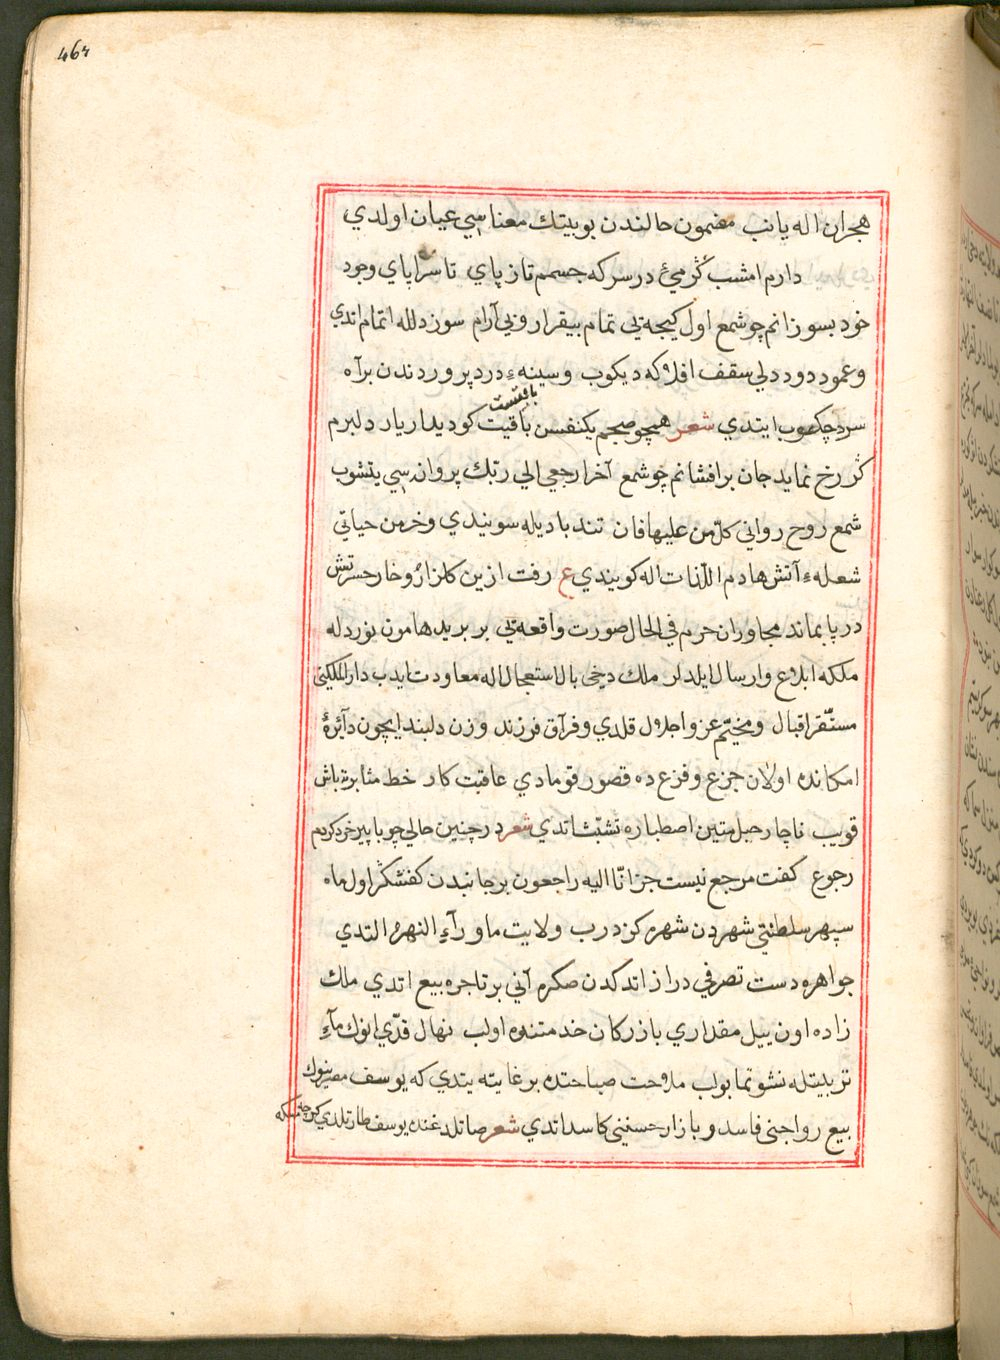 46r
هجران اله يانب مضمون حالندن بو بيتك معناسي عيان اولدي
دارم امشب گرمیٔ در سر که جسمم تا زپاي تا سراپاي وجود
خود بسوزانم چو شمع اول كيجه يي تمام بيقرار وبي آرام سوز دلله اتمام اتدي
وعمود دود دلي سقف افلاكه ديكوب وسينهٔ درد پروردندن بر آه
سرد چكوب ايتدي شعر همچو صبحم يكنفس باقيت كو ديدار يار دلبرم
باقيست
گر رخ نمايد جان برافشانم چو شمع آخر ارجعي الي ربك پروانه سي يتشوب
شمع روح رواني كلّ من عليها فان تند باديله سويندي وخرمن حياتي
شعلهٔ آتش هادم اللّذات اله كويندي ع رفت ازين كلزار و خار حسرتش
در پا بماند مجاوران حرم في الحال صورت واقعه يي بر بريد هامون نورد له
ملكه ابلاغ وارسال ايلدلر ملك دخى بالاستعجال اله معاودت ايدب دار الملكني
مستقر اقبال ومخيّم عز واجلال قلدي وفراق فرزند وزن دلبند ايچون دآئرهٔ
امكانده اولان جزع وفزع ده قصور قومادي عاقبت كار خط مثابرته باش
قويب ناچار حبل متين اصطباره تشبّث اتدي شعر در چنين حالي چو با پير خرد كردم
رجوع كفت مرجع نيست جز انّا اليه راجعون بر جانبدن كفشگر اول ماه
سپهر سلطنتي شهردن شهره كزدرب ولايت ماورآء النهره التدي
جواهره دست تصرفي دراز اتدكدن صكره آني بر تاجره بيع اتدي ملك
زاده اون ييل مقداري بازركان خدمتنده اولب نهال قدّي انوك مآء
تربيتله نشو نما بولب ملاحت صباحتده بر غايته يتدي كه يوسف مصرينوك
بيع رواجنى فاسد و بازار حسنني كاسد اتدي شعر صاتلدغنده يوسف طارتلدي كرچه مسكه